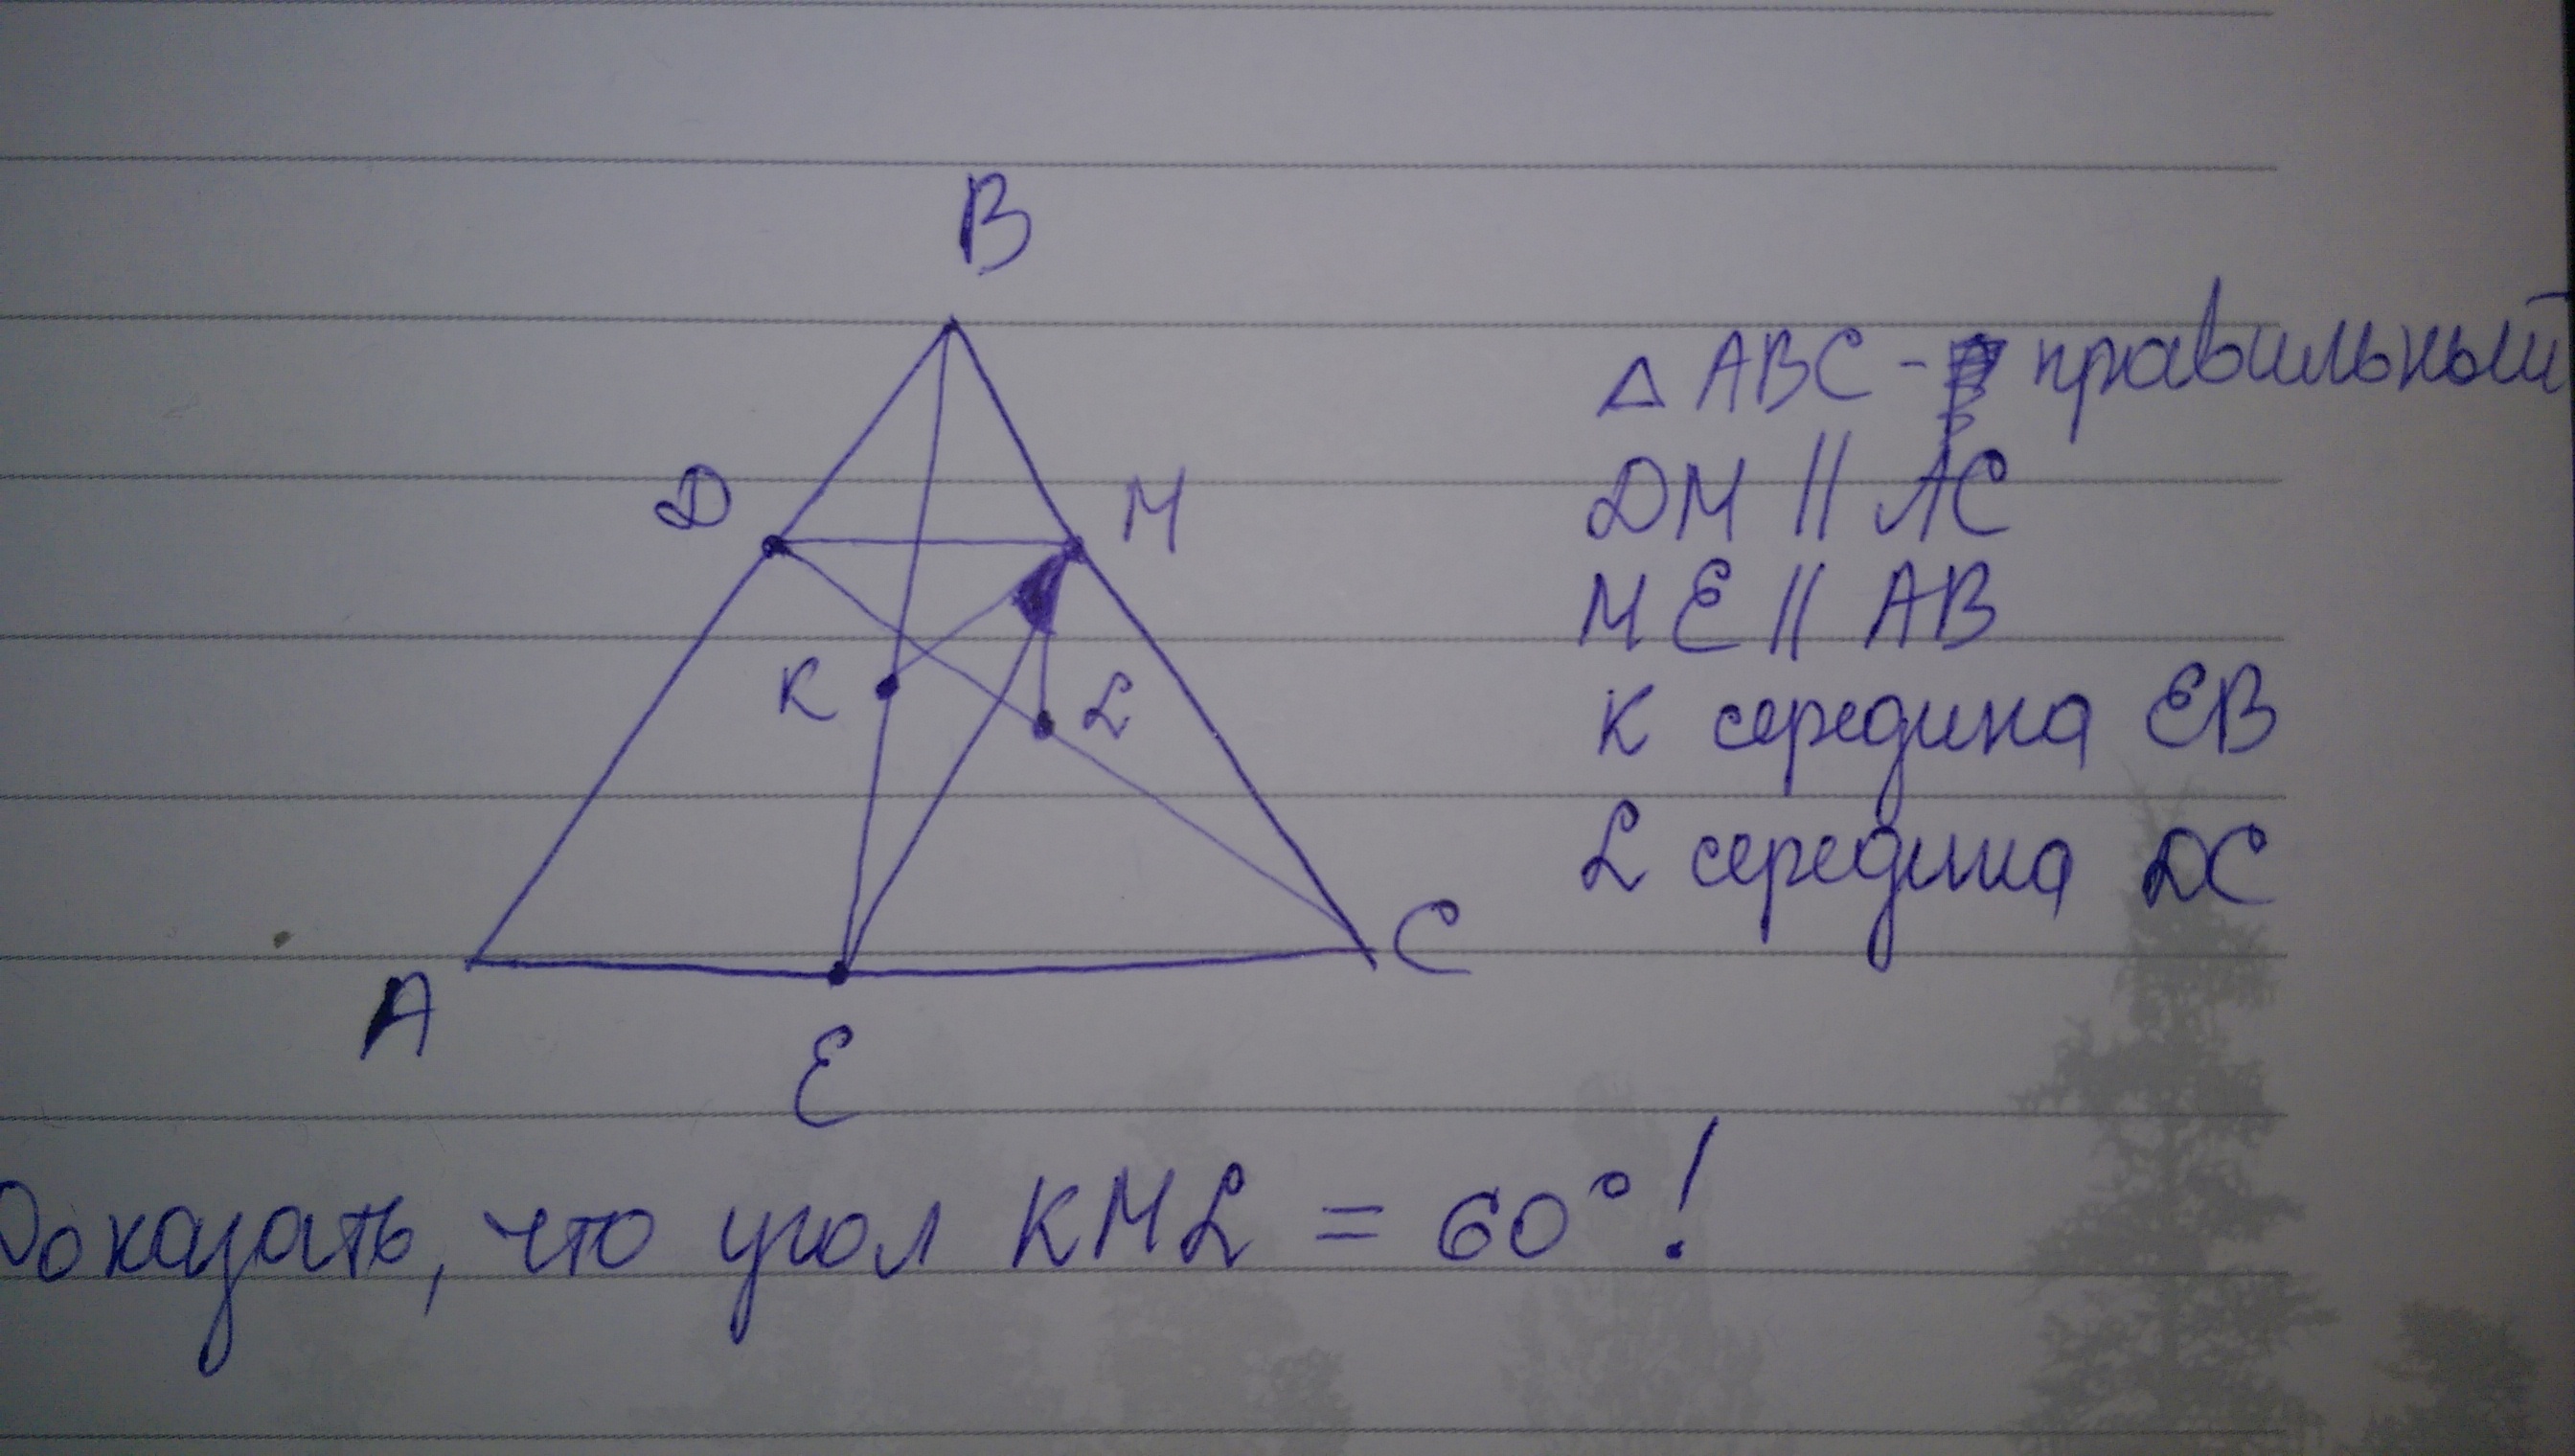 B
D
M
K
L
A
E
C
△ ABC - правильный
DM || AC
ME || AB
K середина EB
L середина DC
Доказать, что угол KML = 60°!